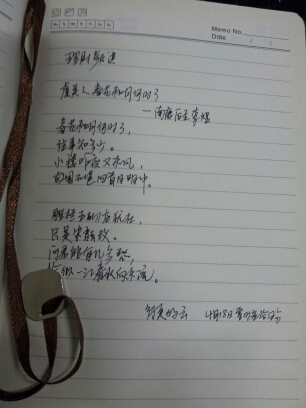 Memo No.
Date
虞美人 春花秋月何时了
——南唐后主李煜
春花秋月何时了，
往事知多少。
小楼昨夜又东风，
故国不堪回首月明中。
雕栏玉砌应犹在，
只是朱颜改。
问君能有几多愁，
恰似一江春水向东流。